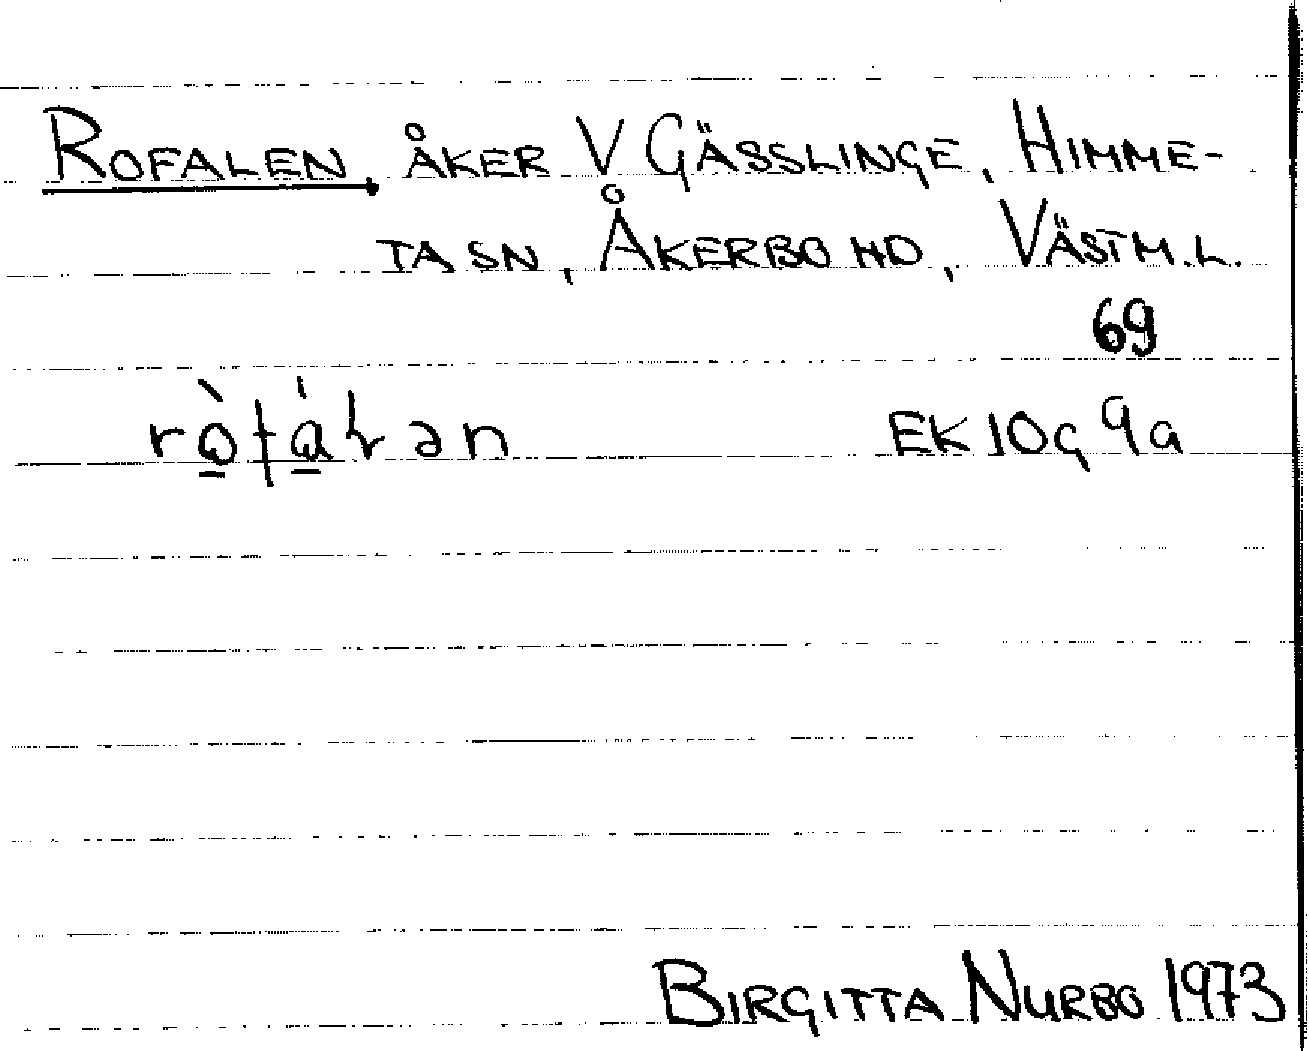 ROFALEN, ÅKER V GÄSSLINGE, HIMME-
TA SN, ÅKERBO HD, VÄSTM.L.
69
EK 10G 9a
BIRGITTA NURBO 1973